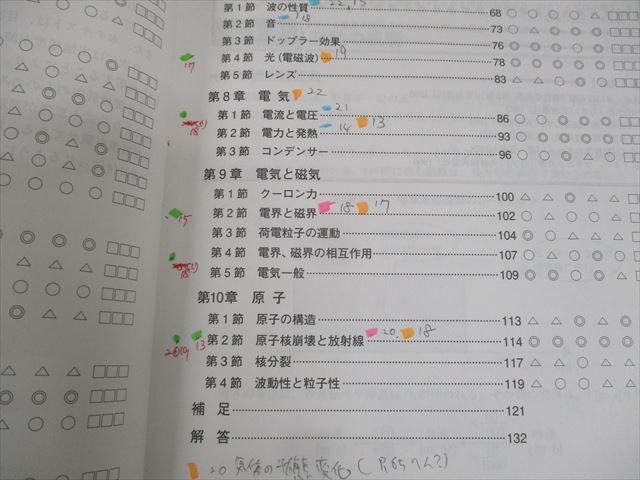 第1節 波の性質 22, 15 68 ○ △ ○ ○ □□□
第2節 音 18 73 ○
第3節 ドップラー効果 76 ◎
17 第4節 光(電磁波) 19 78 ○ ○ ○ ○ □□□
第5節 レンズ 83 △ △ ○ ◎ □□□
第8章 電 気 22
第1節 電流と電圧 21 86
第2節 電力と発熱 14 13 93
第3節 コンデンサー 96
第9章 電気と磁気
第1節 クーロン力 100
15 第2節 電界と磁界 18 17 102
第3節 荷電粒子の運動 104
第4節 電界、磁界の相互作用 107
第5節 電気一般 109
第10章 原 子
第1節 原子の構造 113
13 第2節 原子核崩壊と放射線 20. 18 114
第3節 核分裂 117
第4節 波動性と粒子性 119
補 足 121
解 答 132
20 気体の 変化 (P.65へん?)